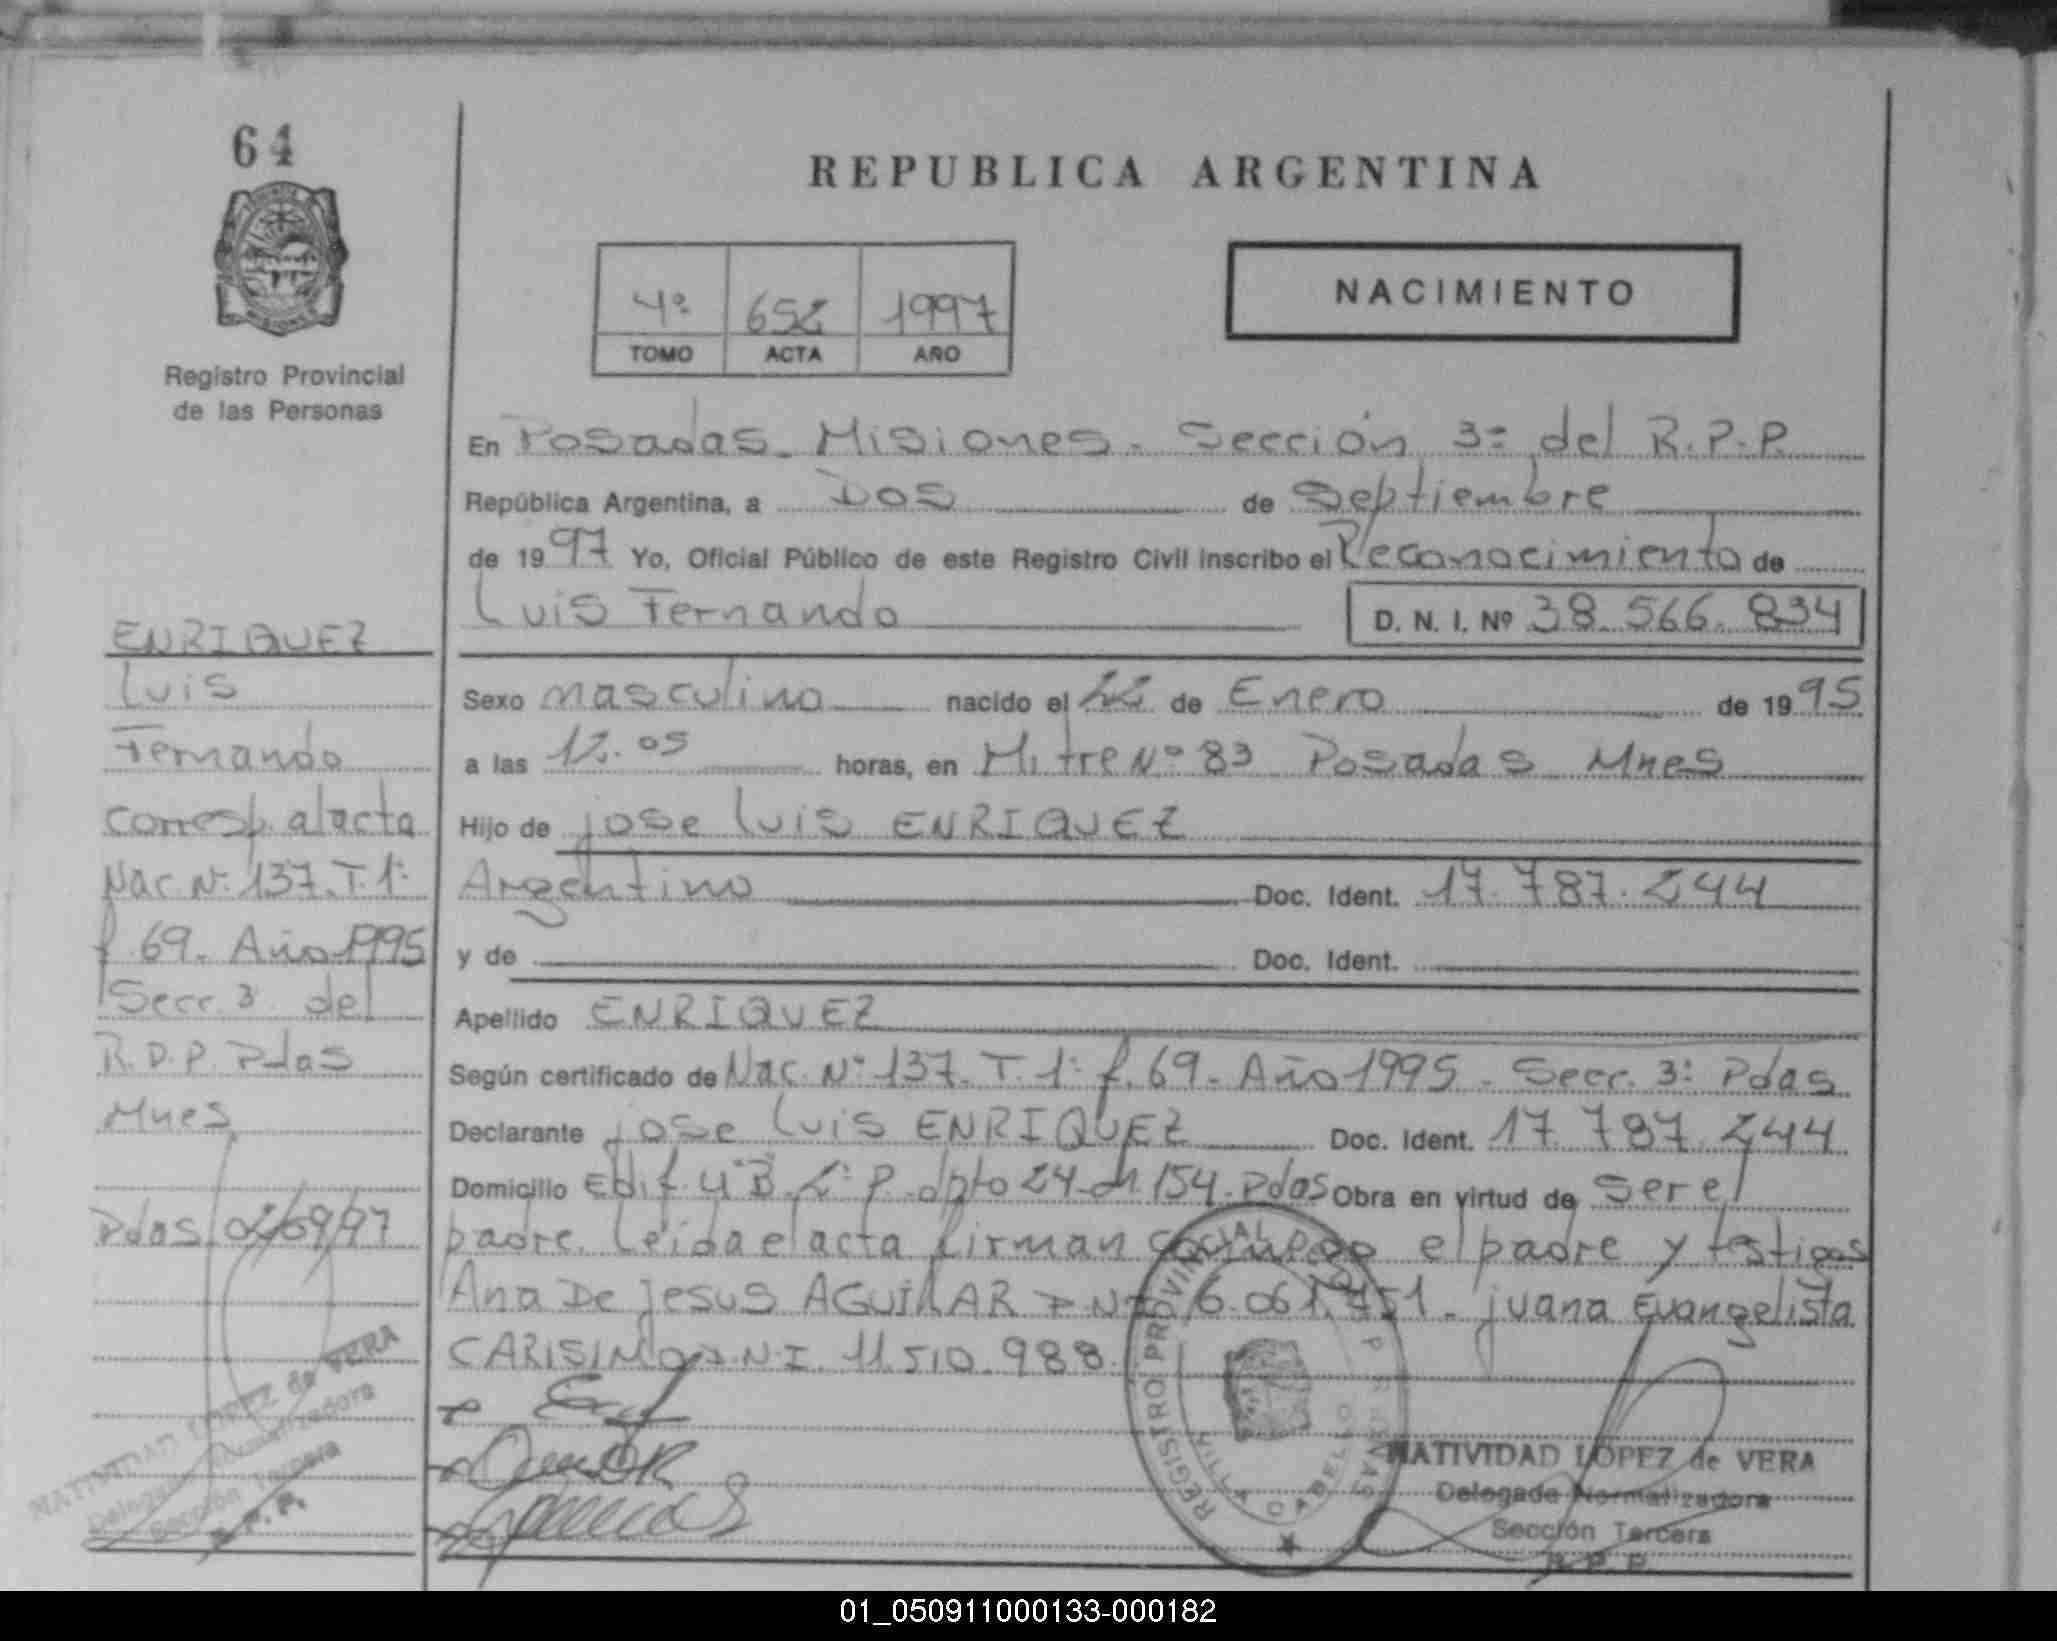 64
REPUBLICA ARGENTINA
NACIMIENTO
4º 652 1997
TOMO ACTA AÑO
Registro Provincial
de las Personas
En Posadas - Misiones - Sección 3ª del R.P.P.
República Argentina, a Dos de Septiembre
de 1997 Yo, Oficial Público de este Registro Civil inscribo el Reconocimiento de
Luis Fernando D. N. I. Nº 38.566.834
Sexo masculino nacido el 22 de Enero de 1995
a las 12.05 horas, en Mitre Nº 83 Posadas Mnes
Hijo de jose Luis ENRIQUEZ
Argentino Doc. Ident. 17.787.244
y de Doc. Ident.
Apellido ENRIQUEZ
Según certificado de Nac. Nº 137. T. 1º f. 69. Año 1995 - Secc. 3ª Pdas
Declarante jose Luis ENRIQUEZ Doc. Ident. 17.787.244
Domicilio Edif. 4 "B" 2º P. dpto 24 ch 154. Pdas Obra en virtud de ser el
padre. Leida el acta firman conmigo el padre y testigos
Ana De jesus AGUILAR DNI 6.061.751 - juana Evangelista
CARISIMO D.N.I. 11.510.988
ENRIQUEZ
Luis
Fernando
corresp. al acta
Nac. Nº 137. T. 1º
f. 69. Año 1995
Secc. 3 del
R.P.P. Pdas
Mnes
Pdas 02/09/97
NATIVIDAD LOPEZ de VERA
Delegada Normalizadora
Sección Tercera
R. P. P.
REGISTRO PROVINCIAL
NATIVIDAD LOPEZ de VERA
Delegada Normalizadora
Sección Tercera
R. P. P.
01_050911000133-000182